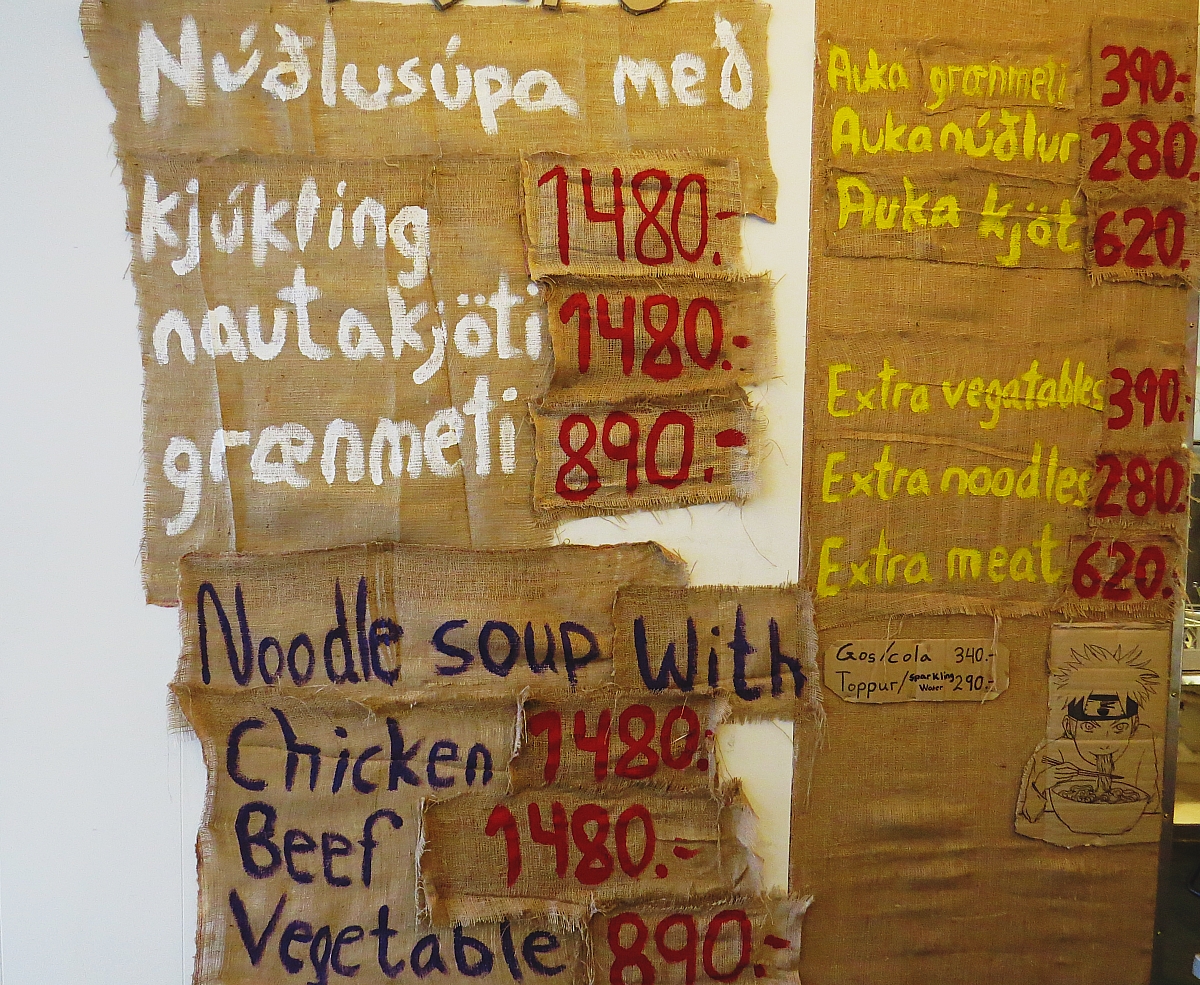 Núðlusúpa með
kjúkling 1480.-
nautakjöti 1480.-
grænmeti 890.-
Noodle soup with
Chicken 1480.-
Beef 1480.-
Vegetable 890.-
Auka grænmeti 390.-
Auka núðlur 280.
Auka kjöt 620.
Extra vegatables 390.-
Extra noodles 280.
Extra meat 620.
Gos/cola 340.-
Toppur/sparkling Water 290.-